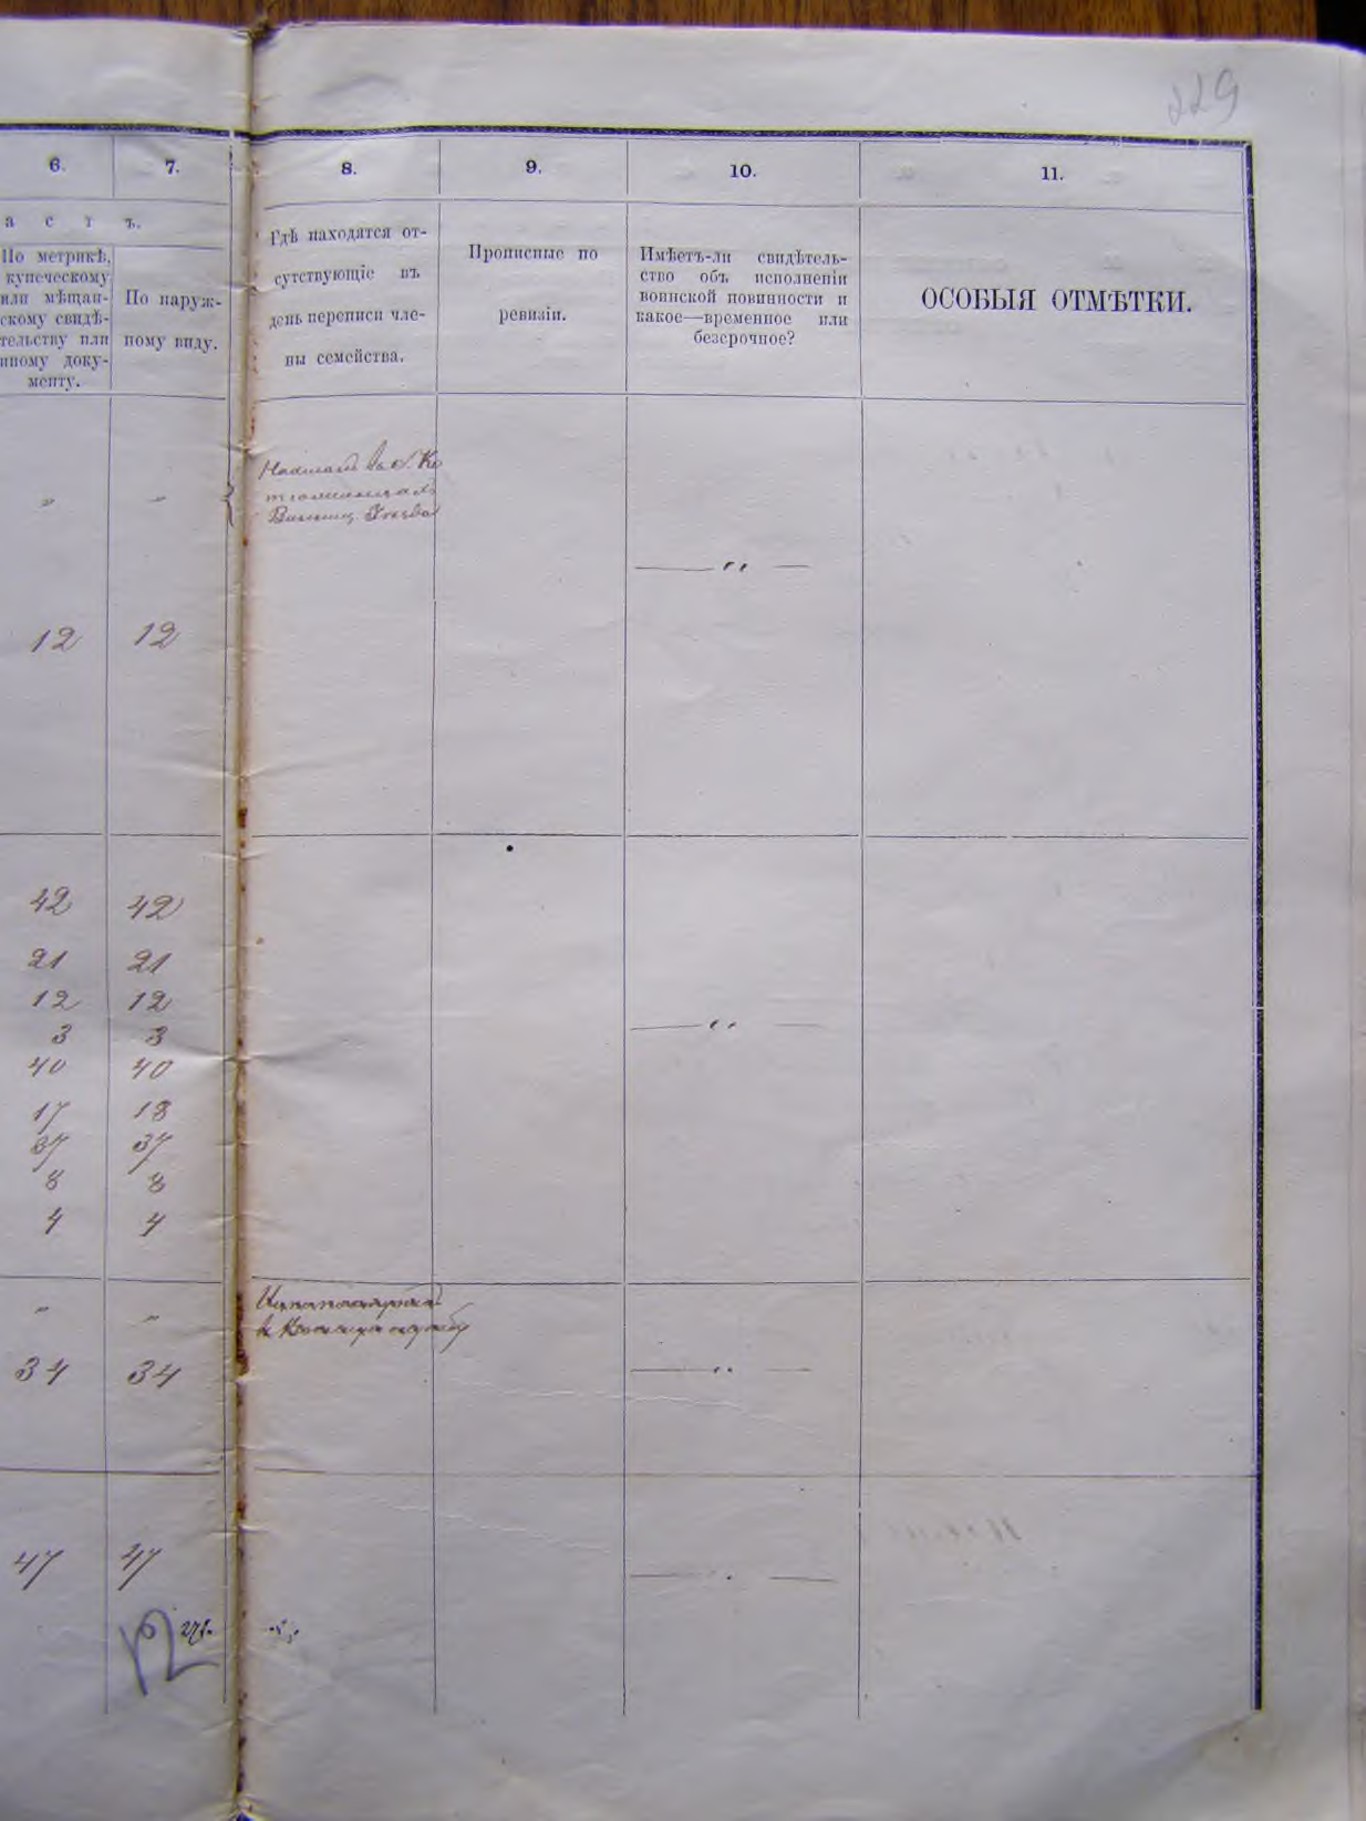 229
6. 7. 8. 9. 10. 11.
а с т ъ.
По метрикѣ,
купеческому
или мѣщан-
скому свидѣ-
тельству или
иному доку-
менту.
По наруж-
ному виду.
Гдѣ находятся от-
сутствующіе въ
день переписи чле-
ны семейства.
Прописные по
ревизіи.
Имѣетъ-ли свидѣтель-
ство объ исполненіи
воинской повинности и
какое—временное или
безсрочное?
ОСОБЫЯ ОТМѢТКИ.
" "
— " —
12 12
42 42
21 21
12 12
3 3
— " —
40 40
17 18
37 37
8 8
4 4
" "
34 34
— " —
47 47